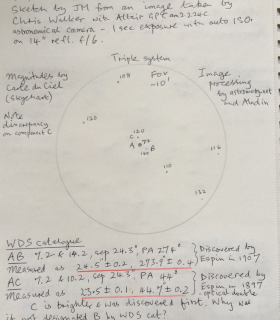 Sketch by JM from an image taken by
Chris Walker with Altair GPCam2 224c
astronomical camera - 1 sec exposure with auto ISO
on 14" refl. f/6.
Triple system
Magnitudes by
Carte du Ciel
(Skychart)
FOV
~10'
Image
processing
by astrometry.net
and Aladin
Note
discrepancy
on component C
108
120
120
C
A 72 B
110
116
132
WDS catalogue
AB 7.2 & 14.2, sep 24.5", PA 274°
Measured as 24.5" ± 0.2, 273.9° ± 0.4
Discovered by
Espin in 1907
AC 7.2 & 10.2, sep 24.3", PA 44°
Measured as 23.5 ± 0.1, 44.7° ± 0.2
Discovered by
Espin in 1897
- optical double
C is brighter & was discovered first. Why was
it not designated B by WDS cat?